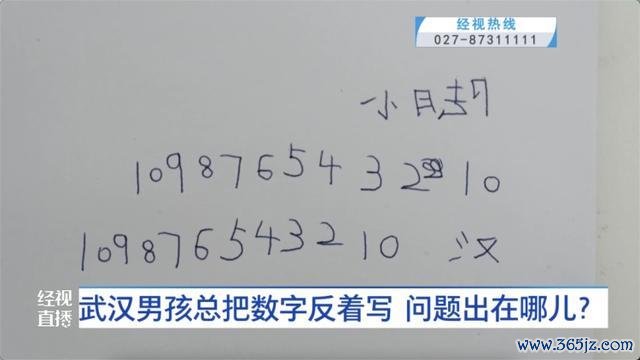 经视热线
027-87311111
小日
10987654 3 2 10
109876543210 汉
经视
直播
武汉男孩总把数字反着写 问题出在哪儿?
www.365jz.com